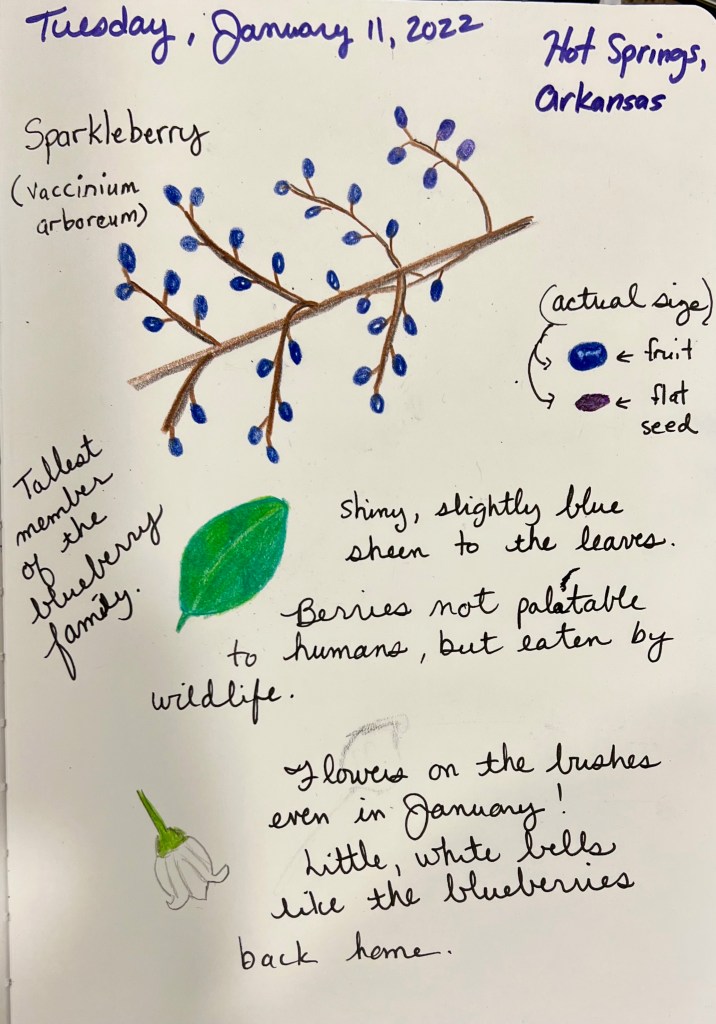 Tuesday, January 11, 2022
Hot Springs,
Arkansas
Sparkleberry
(vaccinium
arboreum)
(actual size)
← fruit
← flat
seed
Tallest
member
of the
blueberry
family.
Shiny, slightly blue
sheen to the leaves.
Berries not palatable
to humans, but eaten by
wildlife.
Flowers on the bushes
even in January!
Little, white bells
like the blueberries
back home.